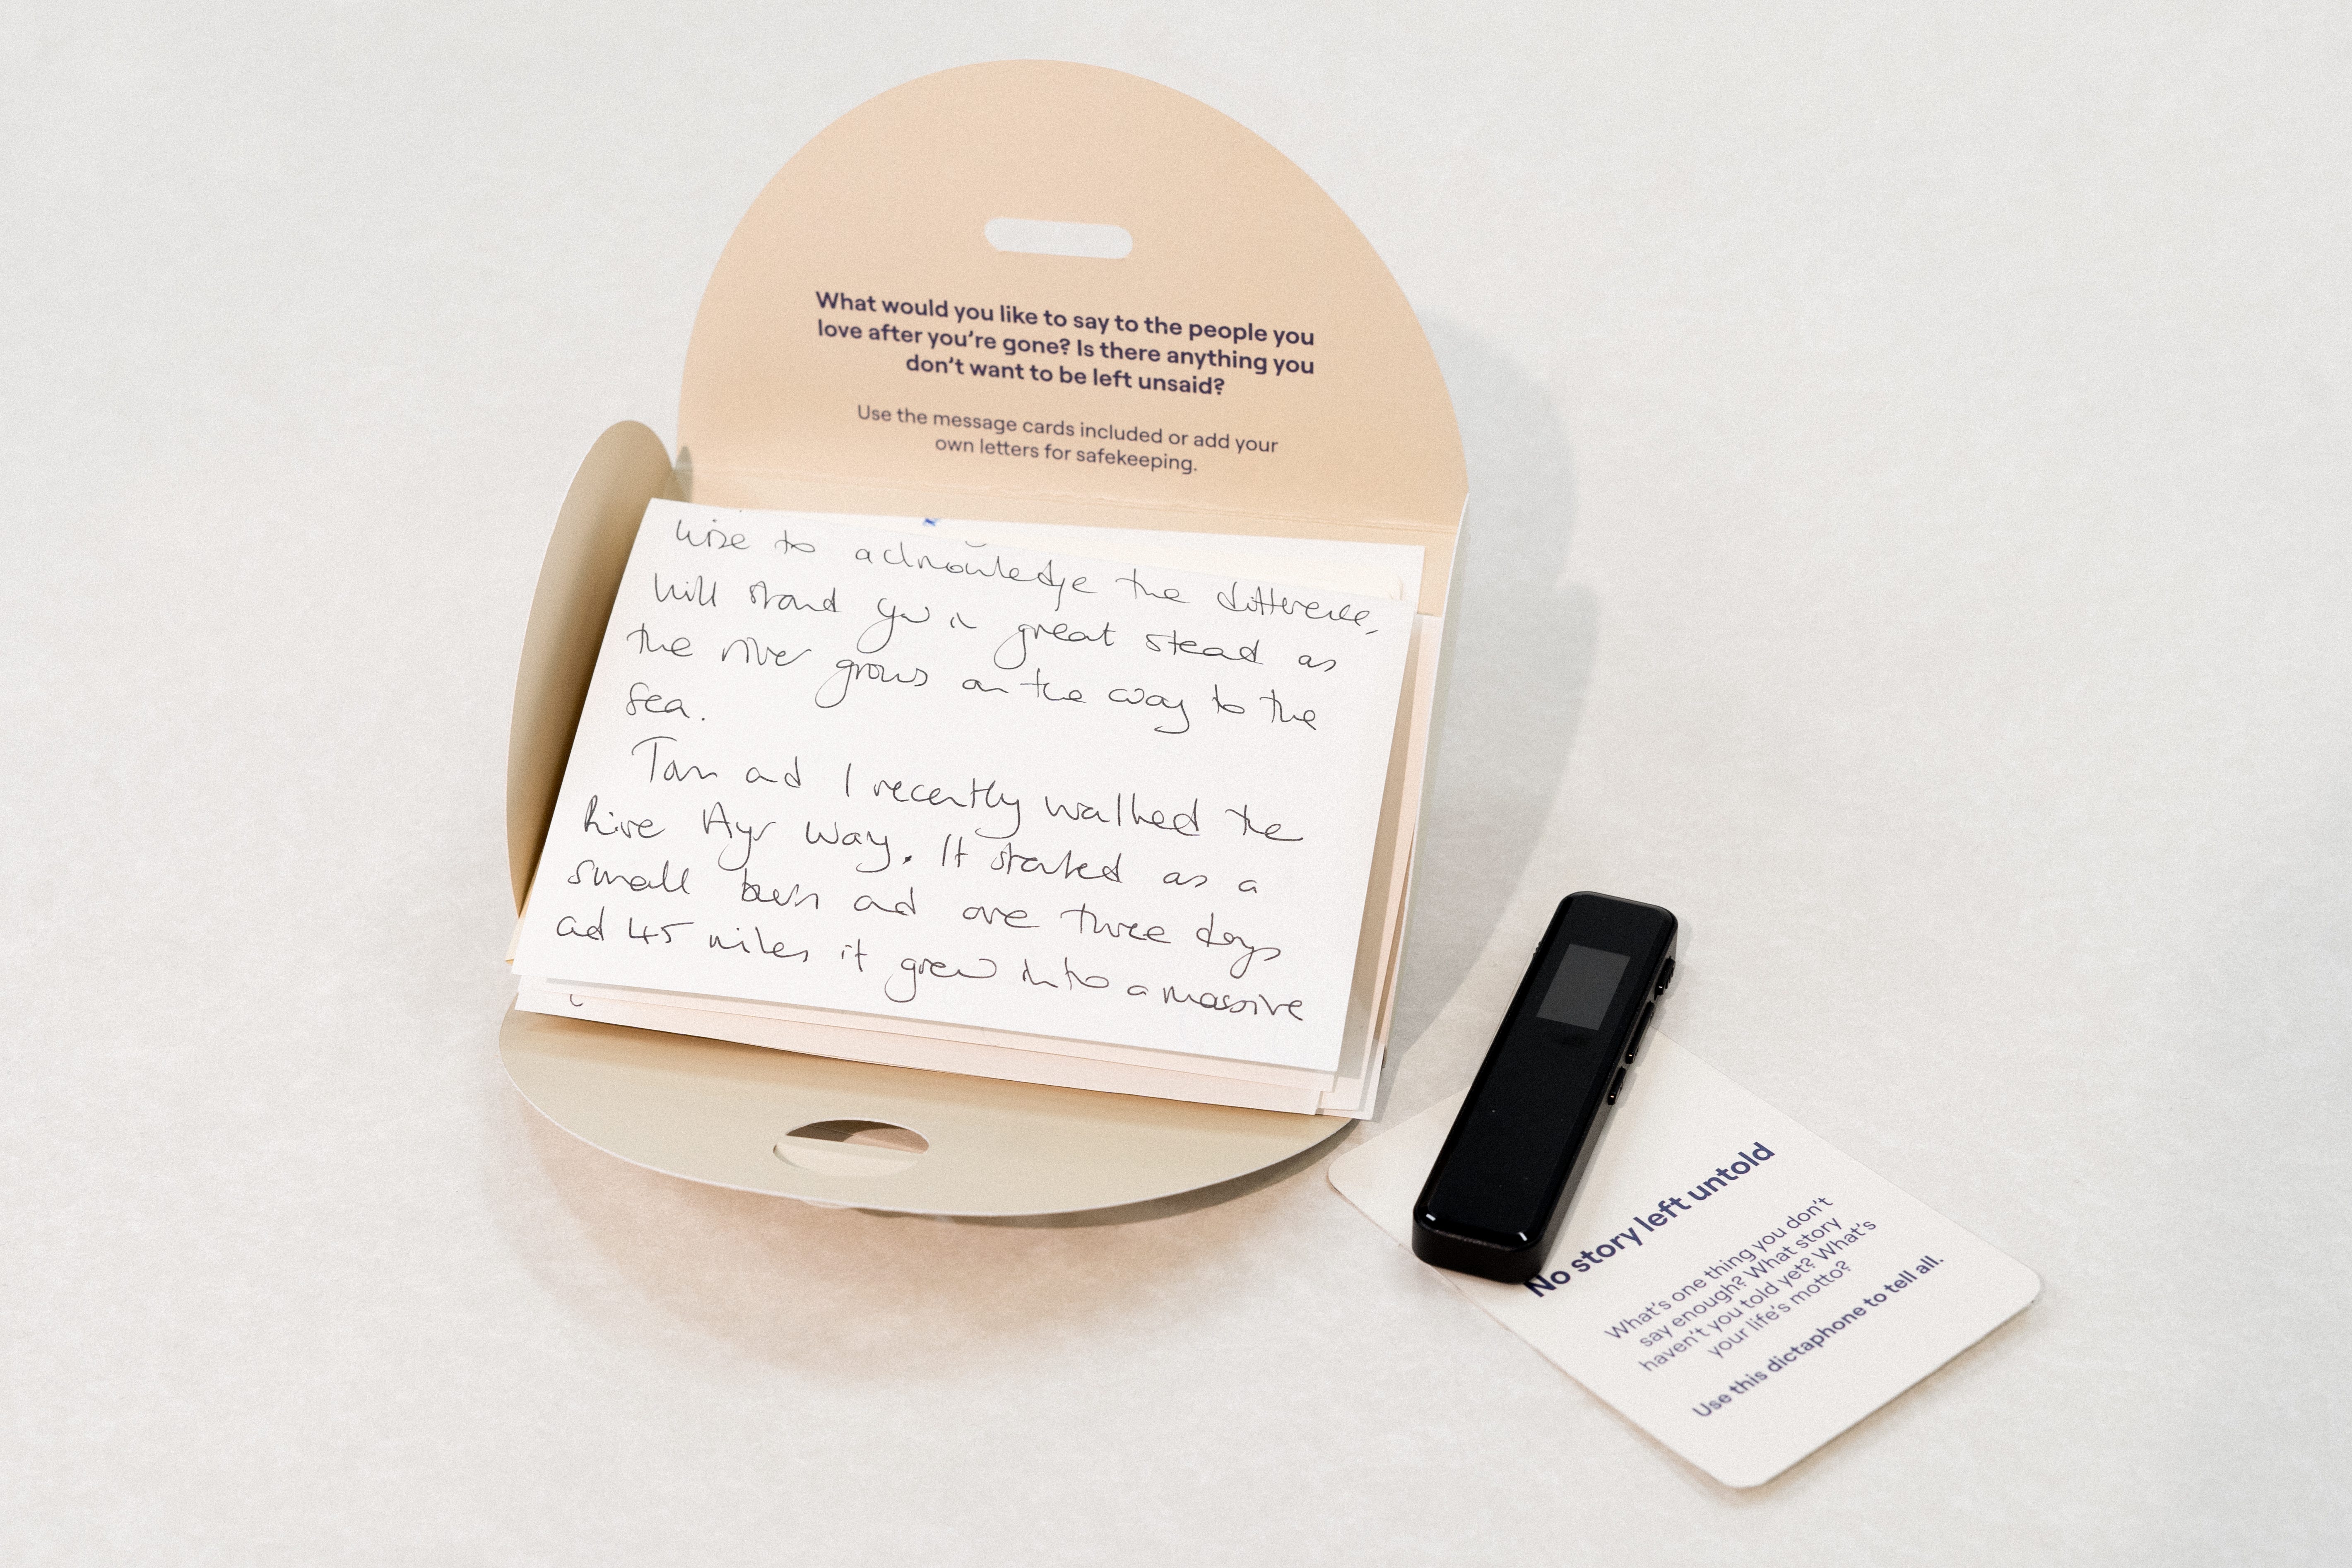 What would you like to say to the people you
love after you're gone? Is there anything you
don't want to be left unsaid?
Use the message cards included or add your
own letters for safekeeping.
wise to acknowledge the difference,
will stand you in great stead as
the river grows on the way to the
sea.
Tom and I recently walked the
River Ayr Way. It started as a
small burn and over three days
and 45 miles it grew into a massive
No story left untold
What's one thing you don't
say enough? What story
haven't you told yet? What's
your life's motto?
Use this dictaphone to tell all.